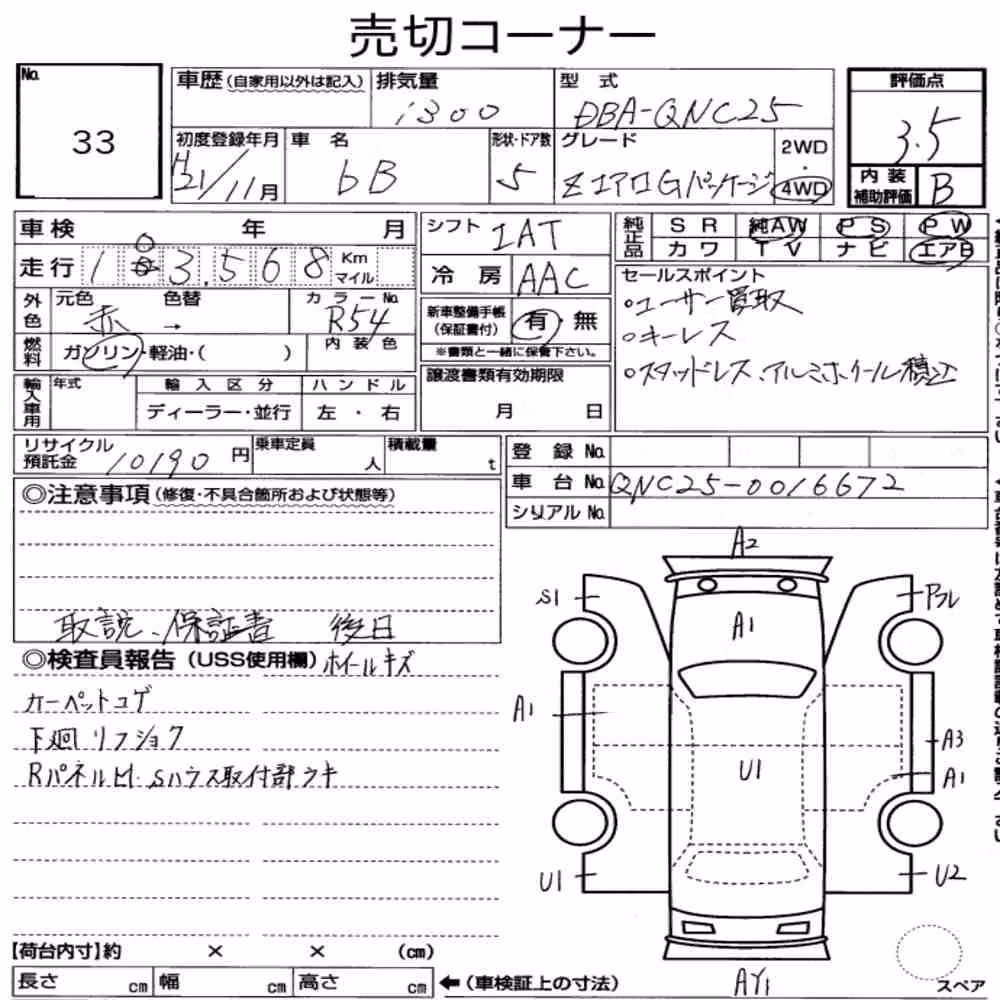 売切コーナー
No. 33
車歴(自家用以外は記入) 排気量 1300 型式 DBA-QNC25 評価点 3.5
初度登録年月 H21/11月 車名 bB 形状・ドア数 5 グレード ZエアロGパッケージ 2WD・4WD 内装補助評価 B
車検 年 月 シフト IAT 純正品 SR 純AW PS PW
カワ TV ナビ エアB
走行 103,568 Km マイル 冷房 AAC
外色 元色 赤 色替 → カラーNo. R54 新車整備手帳(保証書付) 有・無
※書類と一緒に保管下さい。
セールスポイント
○ユーザー買取
○キーレス
○スタッドレス、アルミホイール積込
燃料 ガソリン・軽油・( ) 内装色
輸入車用 年式 輸入区分 ディーラー・並行 ハンドル 左・右
譲渡書類有効期限 月 日
リサイクル預託金 10190円 乗車定員 人 積載量 t
登録No.
車台No. QNC25-0016672
シリアルNo.
◎注意事項(修復・不具合箇所および状態等)
取説、保証書 後日
◎検査員報告(USS使用欄) ホイールキズ
カーペットコゲ
下廻リフショク
A2
S1
A1
A1
A3
A1
U1
U1
U2
AY1
スペア
【荷台内寸】約 × × (cm)
長さ cm 幅 cm 高さ cm ←(車検証上の寸法)